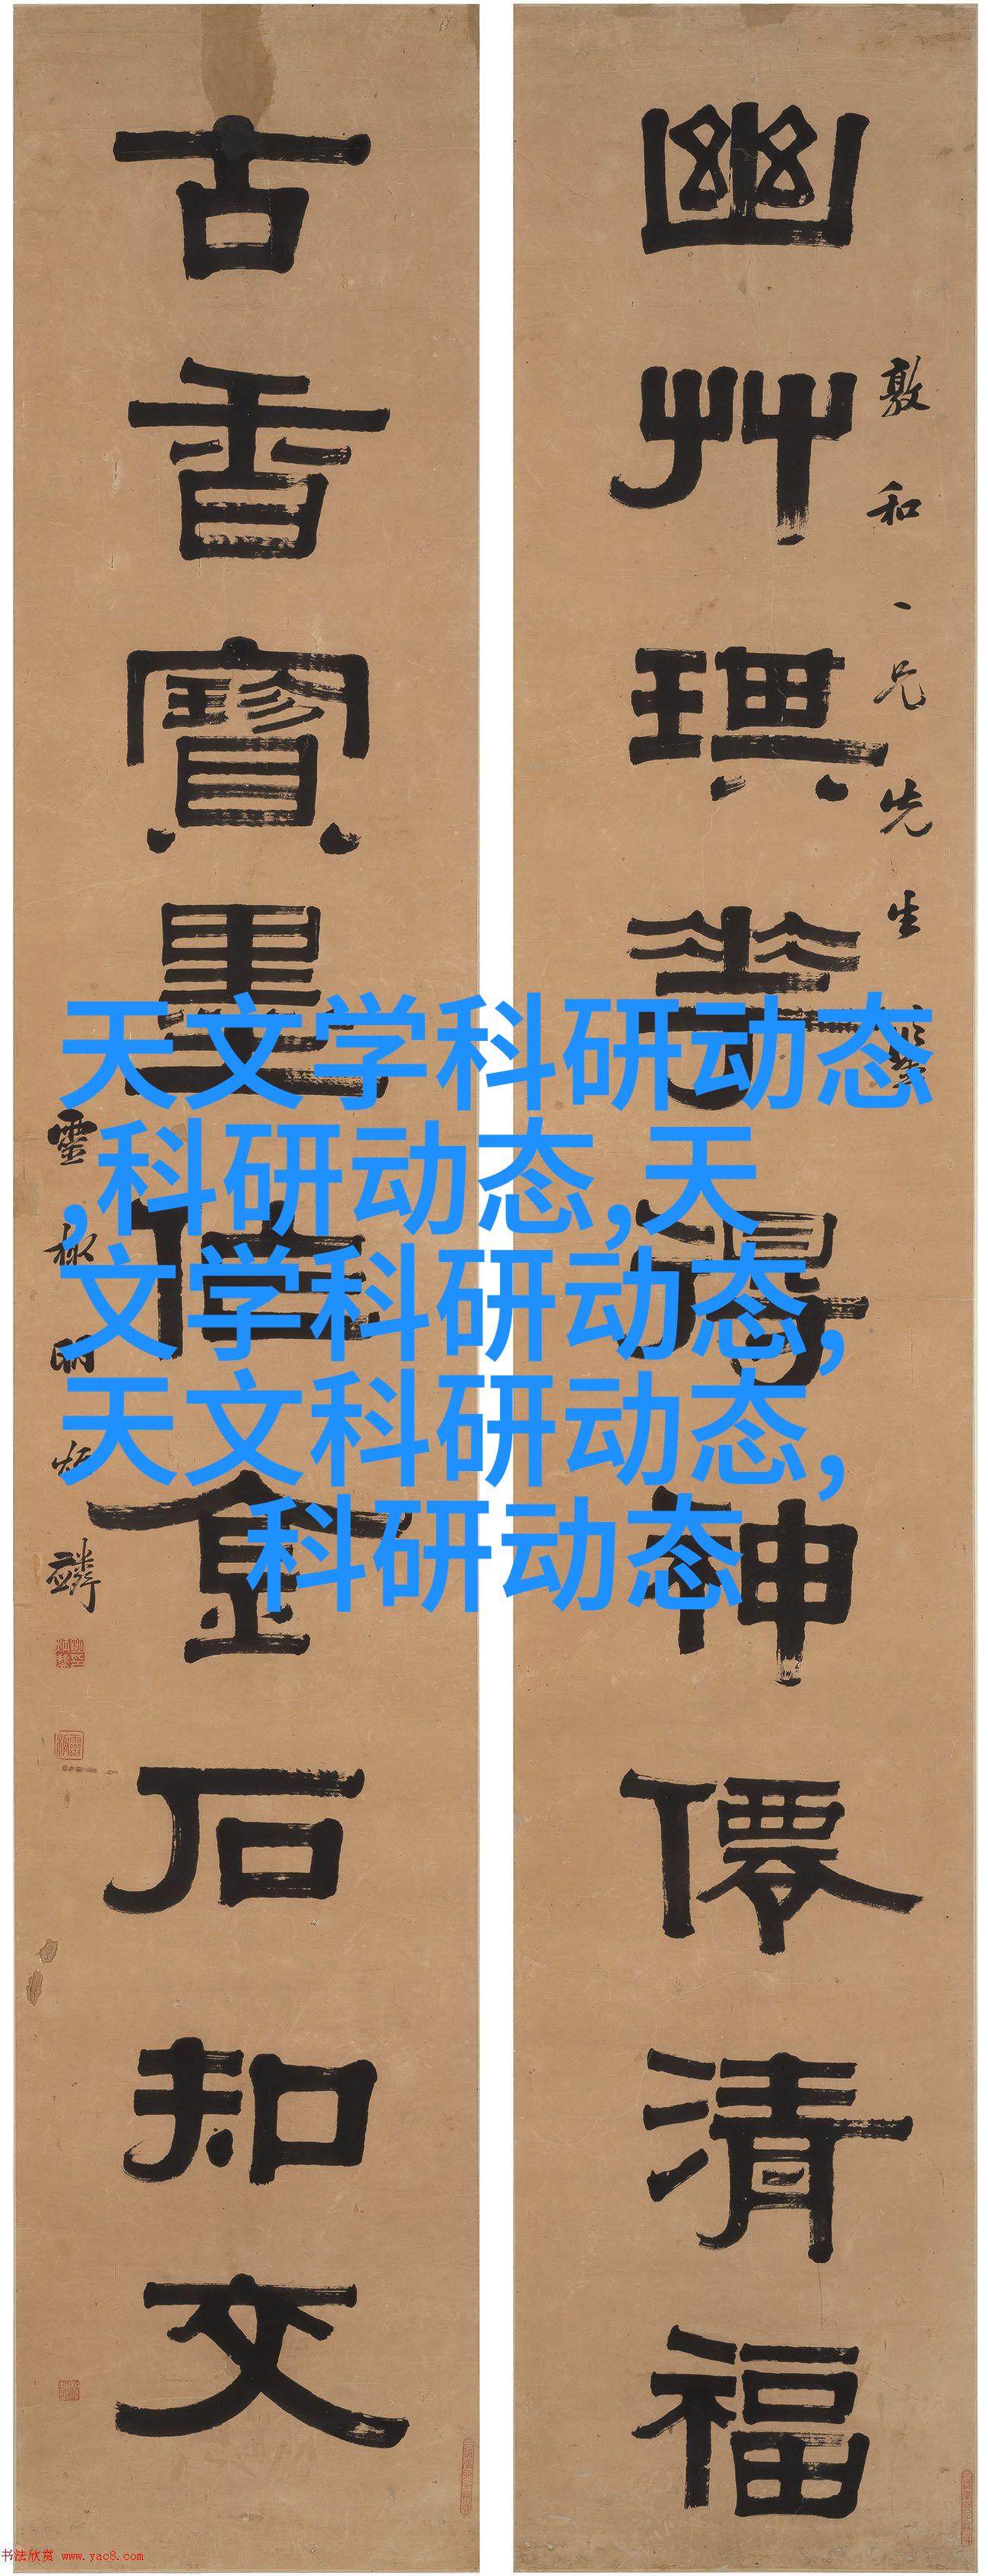 幽艸琪得神僊清福
敦和一兄先生
古香寶墨金石知交
靈明炳麟
天文学科研动态
,科研动态,天
文学科研动态,
天文科研动态,
科研动态
书法欣赏 www.yac8.com